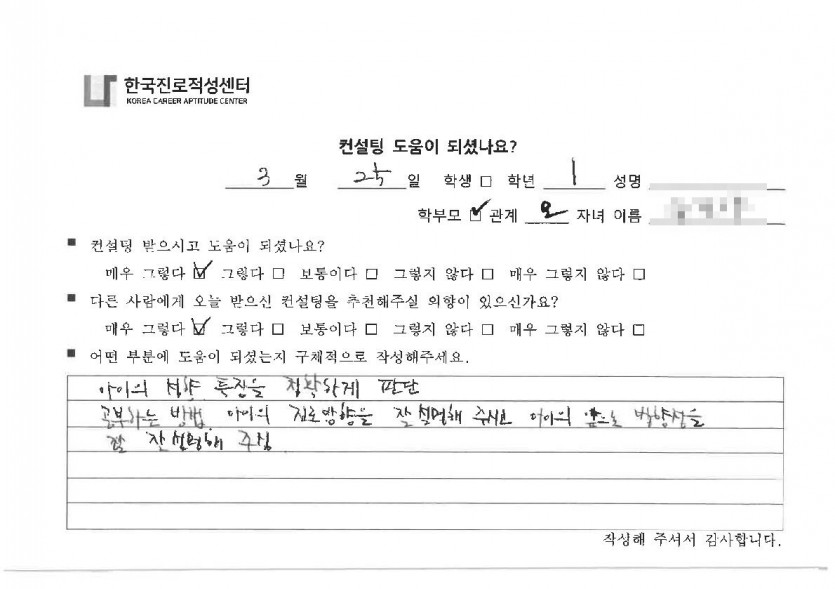 한국진로적성센터
KOREA CAREER APTITUDE CENTER
컨설팅 도움이 되셨나요?
3 월 25 일 학생 □ 학년 1 성명
학부모 ☑ 관계 모 자녀 이름
■ 컨설팅 받으시고 도움이 되셨나요?
매우 그렇다 ☑ 그렇다 □ 보통이다 □ 그렇지 않다 □ 매우 그렇지 않다 □
■ 다른 사람에게 오늘 받으신 컨설팅을 추천해주실 의향이 있으신가요?
매우 그렇다 ☑ 그렇다 □ 보통이다 □ 그렇지 않다 □ 매우 그렇지 않다 □
■ 어떤 부분에 도움이 되셨는지 구체적으로 작성해주세요.
아이의 성향 특징을 정확하게 판단
공부하는 방법. 아이의 진로방향을 잘 설명해 주시고 아이의 앞으로 방향성을
잘 설명해 주심
작성해 주셔서 감사합니다.